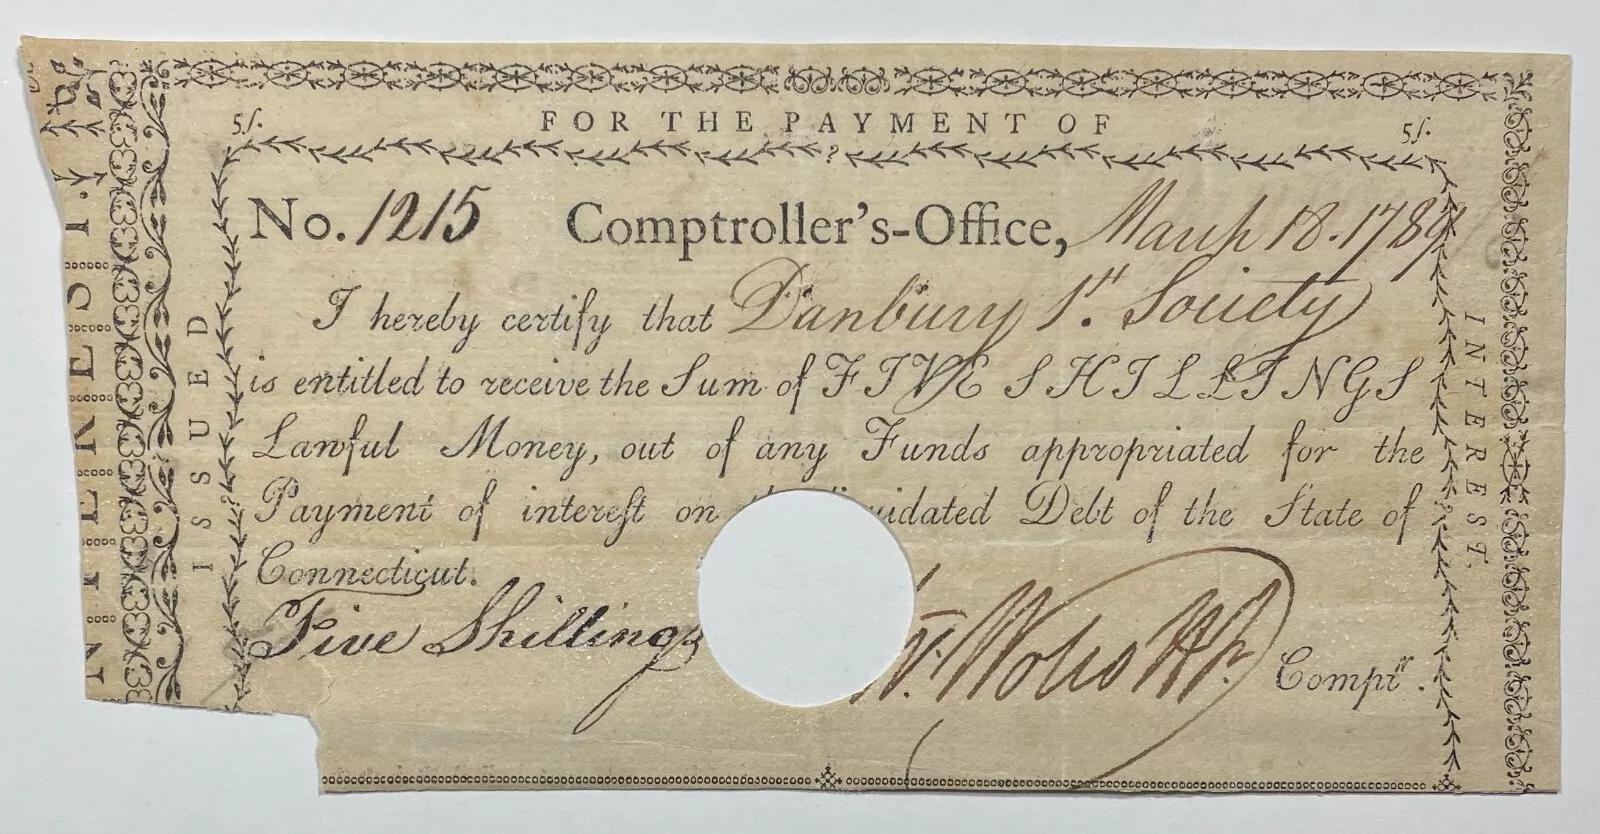 5/.
FOR THE PAYMENT OF
5/.
INTEREST.
No. 1215 Comptroller's-Office, March 18. 1789
I hereby certify that Danbury 1st. Society
is entitled to receive the Sum of FIVE SHILLINGS
Lawful Money, out of any Funds appropriated for the
Payment of interest on
Debt of the State of
Connecticut.
Five Shillings
Wolcott Jr. Comptr.
ISSUED
INTEREST.